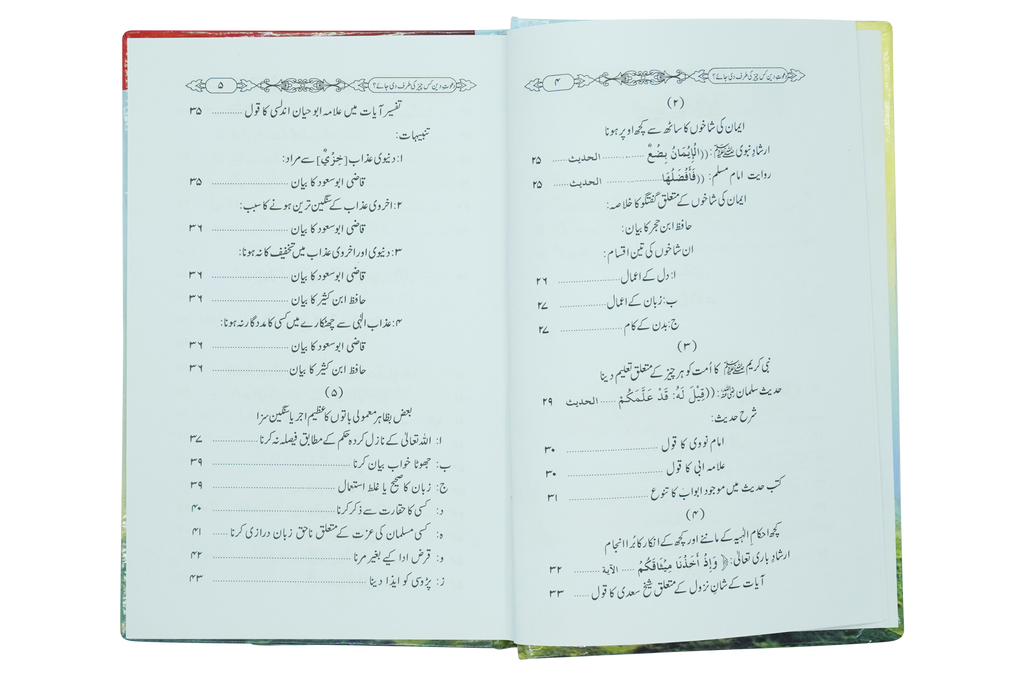 ۴ دعوت دین کس چیز کی طرف دی جائے؟
(۲)
ایمان کی شاخوں کا ساٹھ سے کچھ اوپر ہونا
ارشادِ نبوی ﷺ: ((الْإِيْمَانُ بِضْعٌ ............ الحديث ..... ۲۵
روایت امام مسلم: ((فَأَفْضَلُهَا ............ الحديث ..... ۲۵
ایمان کی شاخوں کے متعلق گفتگو کا خلاصہ:
حافظ ابن حجر کا بیان:
ان شاخوں کی تین اقسام:
ا: دل کے اعمال ............ ۲۶
ب: زبان کے اعمال ............ ۲۷
ج: بدن کے کام ............ ۲۷
(۳)
نبی کریم ﷺ کا اُمت کو ہر چیز کے متعلق تعلیم دینا
حدیث سلمان رضی اللہ عنہ: ((قِيْلَ لَهُ: قَدْ عَلَّمَكُمْ ..... الحديث ۲۹
شرح حدیث:
امام نووی کا قول ............ ۳۰
علامہ ابی کا قول ............ ۳۰
کتب حدیث میں موجود ابواب کا تنوع ............ ۳۱
(۴)
کچھ احکامِ الٰہیہ کے ماننے اور کچھ کے انکار کا بُرا انجام
ارشادِ باری تعالیٰ: ﴿ وَإِذْ أَخَذْنَا مِيْثَاقَكُمْ ..... الآية ............ ۳۲
آیات کے شانِ نزول کے متعلق شیخ سعدی کا قول ...... ۳۳
۵ دعوت دین کس چیز کی طرف دی جائے؟
تفسیر آیات میں علامہ ابو حیان اندلسی کا قول ............ ۳۵
تنبیہات:
۱: دنیوی عذاب [خِزْيٌ] سے مراد:
قاضی ابوسعود کا بیان ............ ۳۵
۲: اخروی عذاب کے سنگین ترین ہونے کا سبب:
قاضی ابوسعود کا بیان ............ ۳۶
۳: دنیوی اور اخروی عذاب میں تخفیف کا نہ ہونا:
قاضی ابوسعود کا بیان ............ ۳۶
حافظ ابن کثیر کا بیان ............ ۳۶
۴: عذاب الٰہی سے چھٹکارے میں کسی کا مددگار نہ ہونا:
قاضی ابوسعود کا بیان ............ ۳۶
حافظ ابن کثیر کا بیان ............ ۳۶
(۵)
بعض بظاہر معمولی باتوں کا عظیم اجر یا سنگین سزا
ا: اللہ تعالیٰ کے نازل کردہ حکم کے مطابق فیصلہ نہ کرنا ............ ۳۷
ب: جھوٹا خواب بیان کرنا ............ ۳۹
ج: زبان کا صحیح یا غلط استعمال ............ ۳۹
د: کسی کا حقارت سے ذکر کرنا ............ ۴۰
ہ: کسی مسلمان کی عزت کے متعلق ناحق زبان درازی کرنا ..... ۴۱
و: قرض ادا کیے بغیر مرنا ............ ۴۲
ز: پڑوسی کو ایذا دینا ............ ۴۳